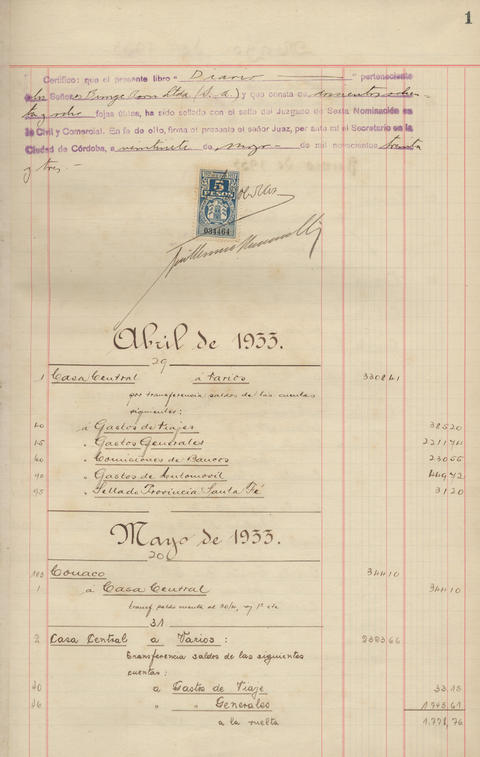 1
Certifico: que el presente libro " Diario " perteneciente
Señores Bunge Born Ltda (S. A.) y que consta de doscientos ochen-
ta y ocho fojas útiles, ha sido sellado con el sello del Juzgado de Sexta Nominación en
lo Civil y Comercial. En fe de ello, firma el presente el señor Juez, por ante mí el Secretario en la
Ciudad de Córdoba, a veintisiete de Mayo de mil novecientos treinta
y tres.-
5
PESOS
031464
Abril de 1933.
29
1 Casa Central á Varios 3308 41
por transferencia saldos de las cuentas
siguientes:
á Gastos de Viajes 385 20
" Gastos Generales 2211 74
" Comisiones de Bancos 230 55
" Gastos de Automovil 449 72
95 " Sellado Provincia Santa Fé 31 20
Mayo de 1933.
20
103 Conaco 344 10
1 á Casa Central 344 10
31
2 Casa Central a Varios:
transferencia saldos de las siguientes
cuentas:
a Gastos de Viaje
" " Generales
a la vuelta 1.778,76